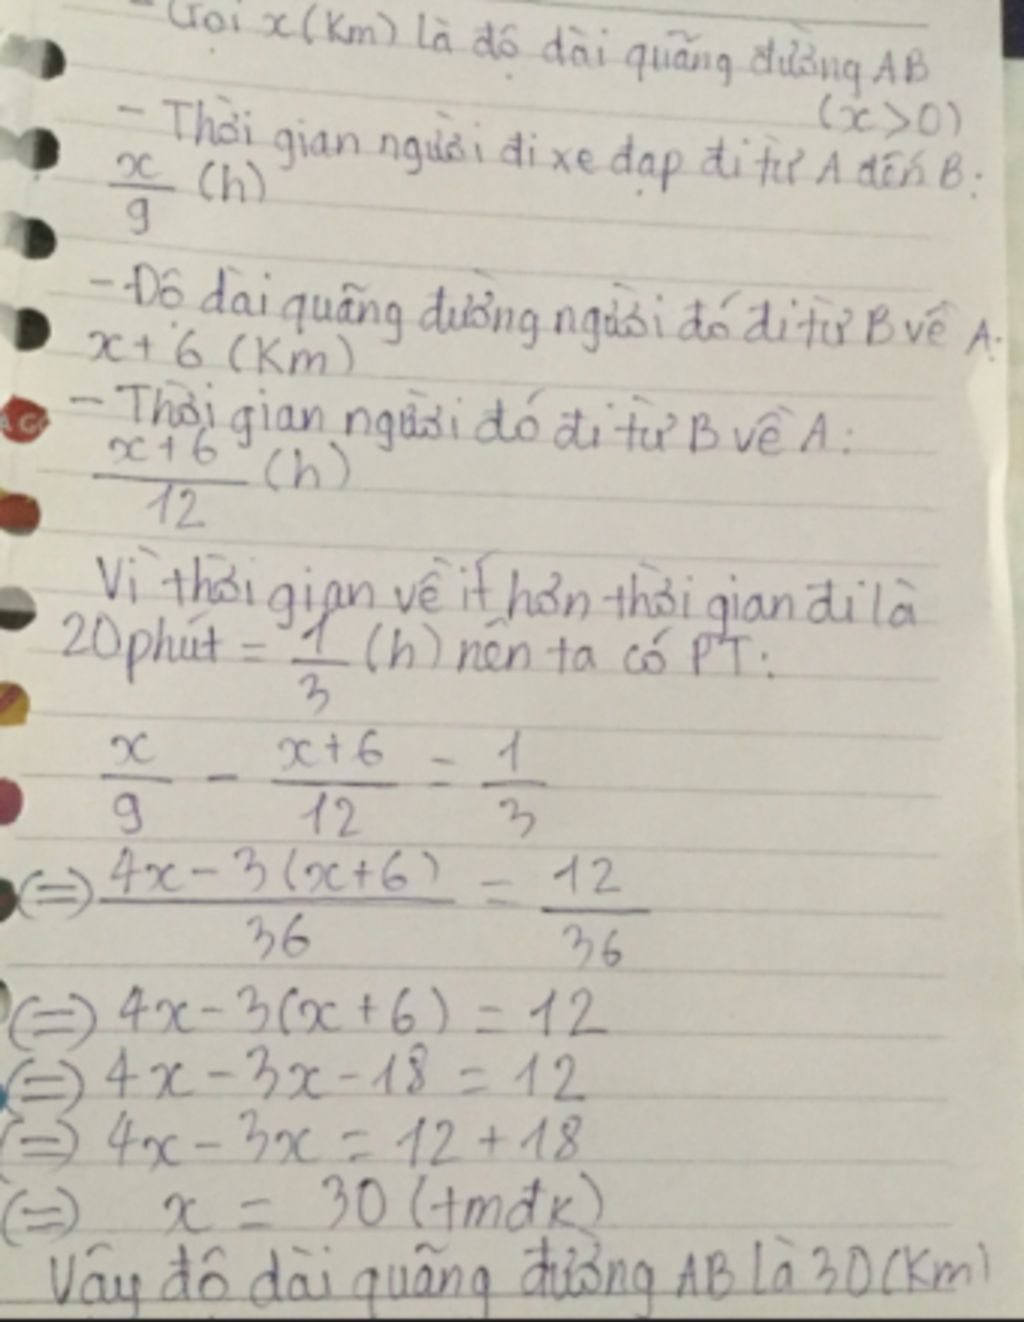 - Gọi x(Km) là độ dài quãng đường AB
(x>0)
- Thời gian người đi xe đạp đi từ A đến B:
x/9 (h)
- Độ dài quãng đường người đó đi từ B về A:
x+6 (Km)
- Thời gian người đó đi từ B về A:
x+6/12 (h)
Vì thời gian về ít hơn thời gian đi là
20 phút = 1/3 (h) nên ta có PT:
x/9 - x+6/12 = 1/3
(=) 4x-3(x+6)/36 = 12/36
(=) 4x-3(x+6) = 12
(=) 4x-3x-18 = 12
(=) 4x-3x = 12+18
(=) x = 30 (tmđk)
Vậy độ dài quãng đường AB là 30(Km)